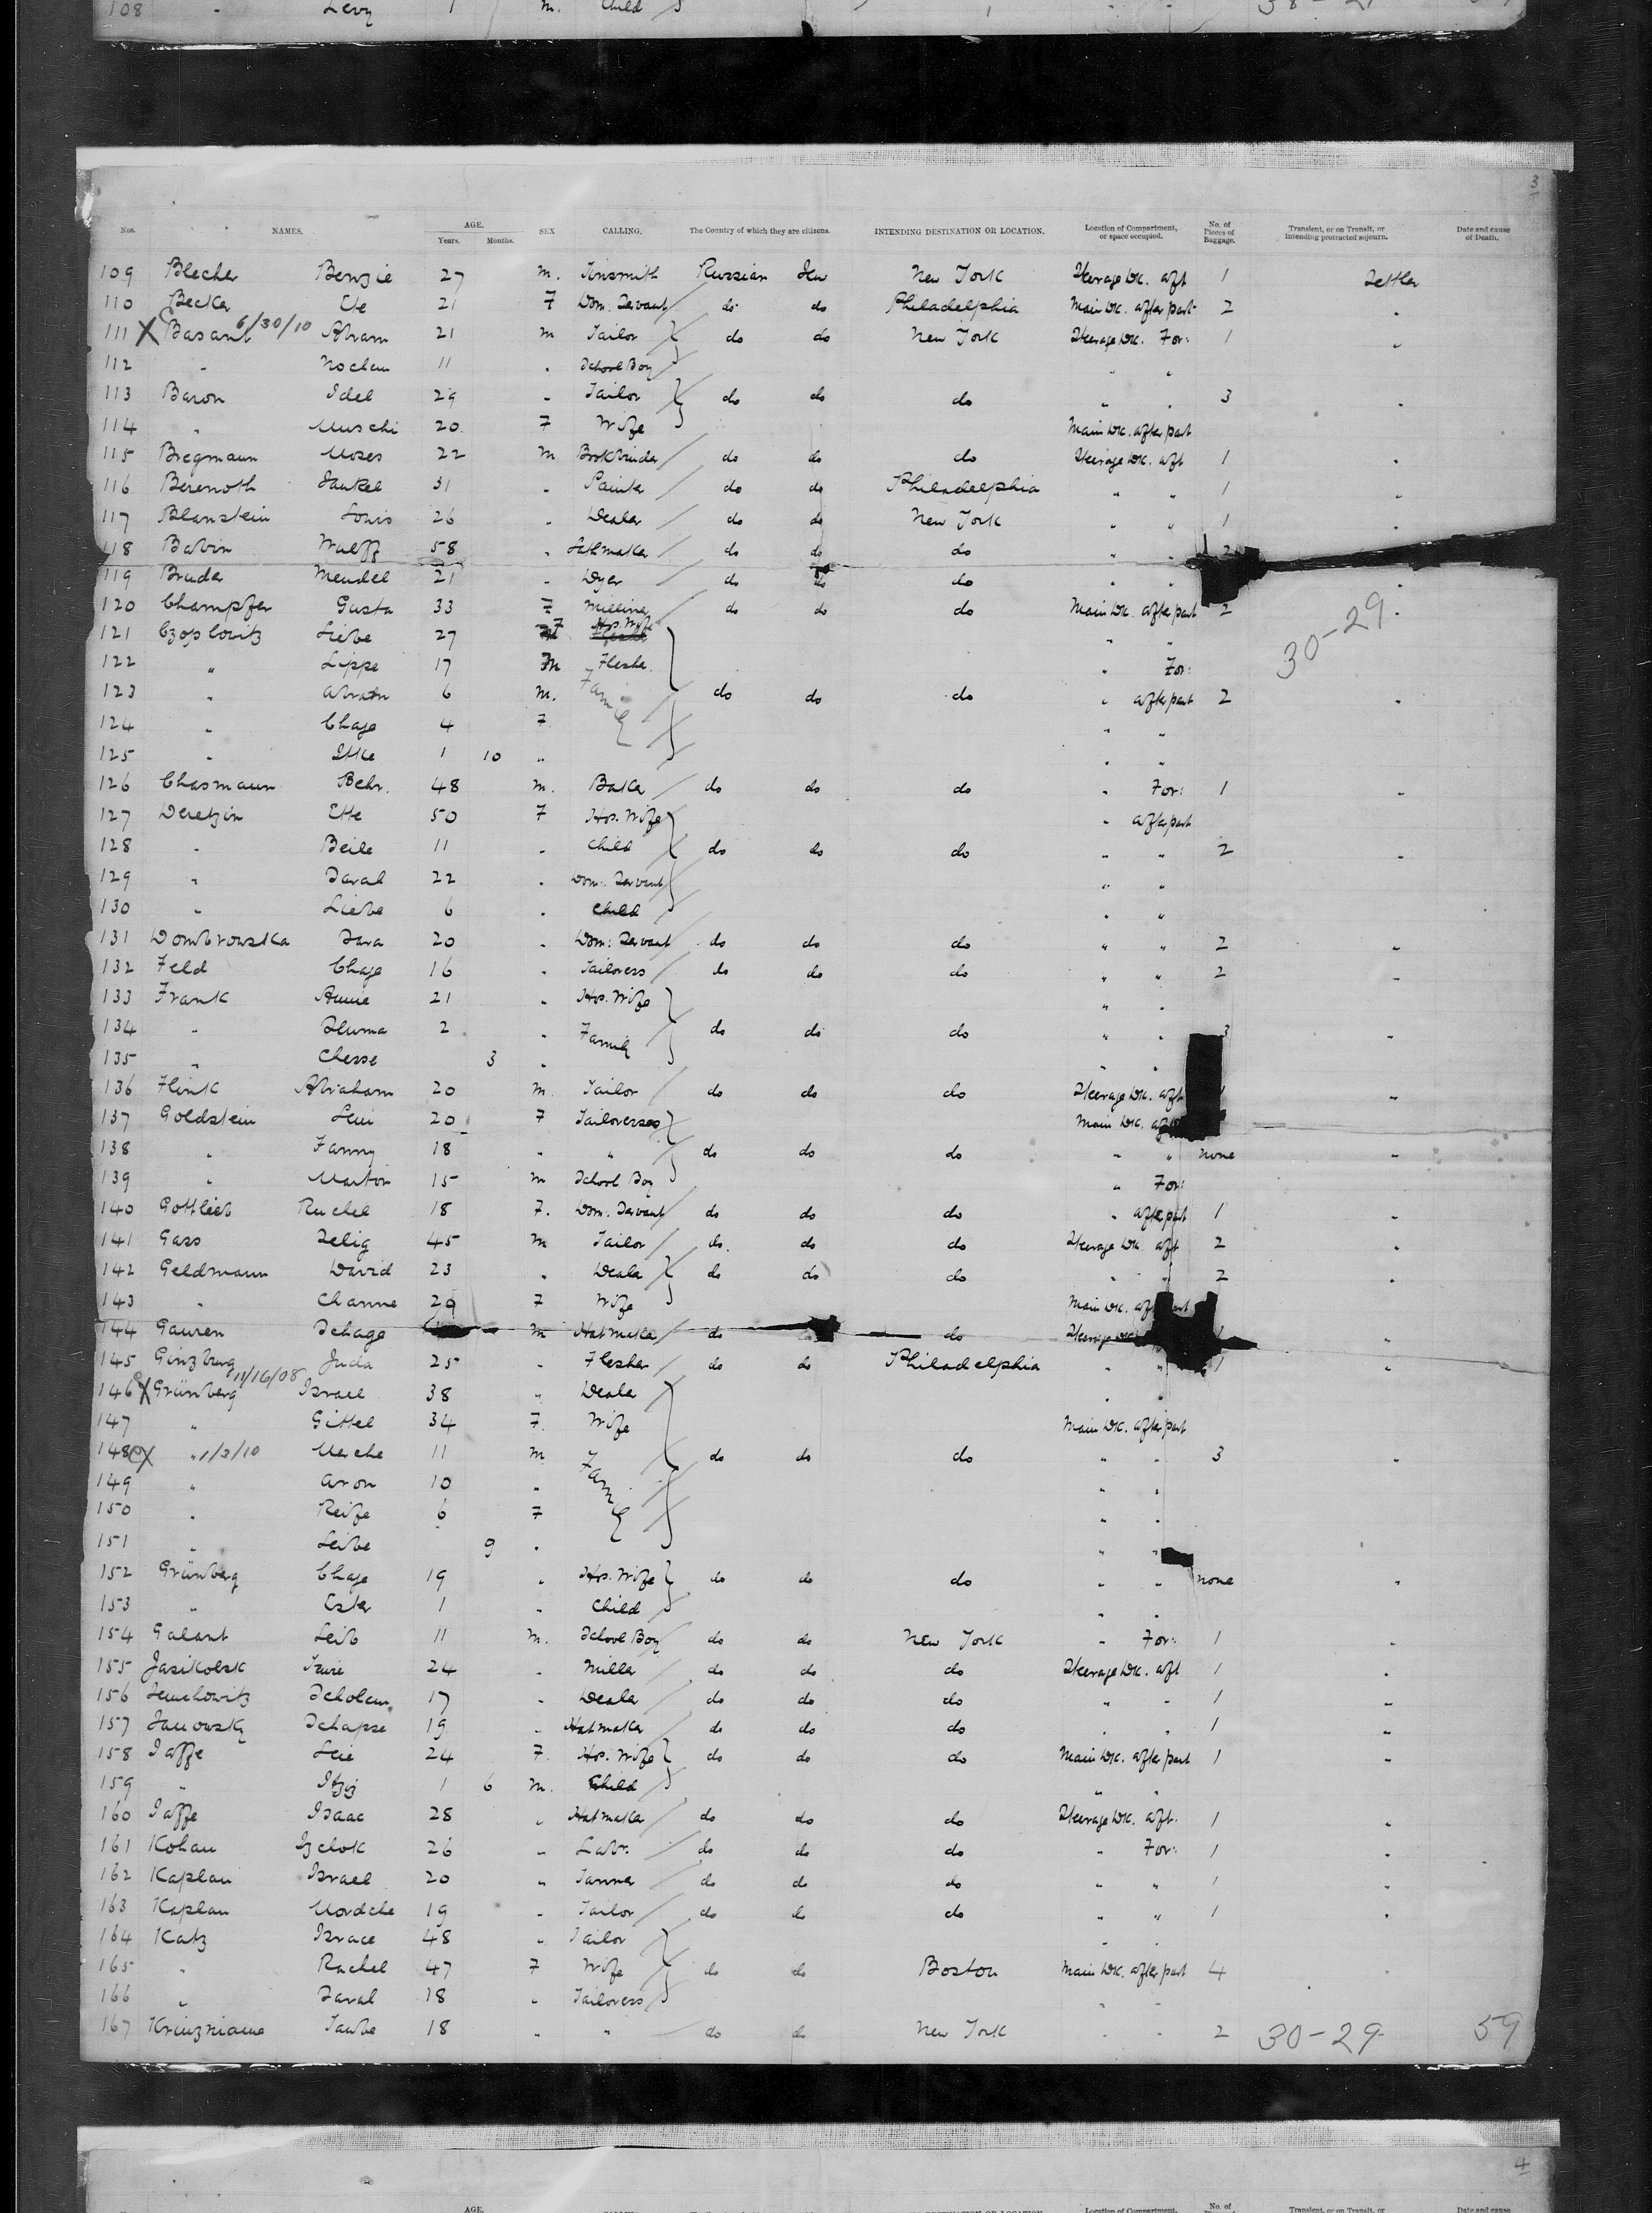 108 " Levy 1 m. Child
3
Nos. NAMES. AGE. Years. Months. SEX CALLING. The Country of which they are citizens. INTENDING DESTINATION OR LOCATION. Location of Compartment, or space occupied. No. of Pieces of Baggage. Transient, or on Transit, or intending protracted sojourn. Date and cause of Death.
109 Blecher Benzie 27 m. Tinsmith Russian Jew New York Steerage Dk. aft 1 Settler
110 Becker Ete 21 F Dom. Servant do do Philadelphia Main Dk. after part 2 "
111 X Basant 6/30/10 Abram 21 m Tailor do do New York Steerage Dk. For: 1 "
112 " Nochem 11 " School Boy " "
113 Baron Idel 29 " Tailor do do do " " 3 "
114 " Muschi 20 F Wife Main Dk. after part
115 Bregmann Moses 22 m Bookbinder do do do Steerage Dk. aft 1 "
116 Berenoth Jankel 31 " Painter do do Philadelphia " " 1 "
117 Blanstein Louis 26 " Dealer do do New York " " 1 "
118 Babin Wulff 58 " do do do " " 2
119 Bruder Mendel 21 " Dyer do do do " " "
120 Champfer Gusta 33 F Milliner do do do Main Dk. after part 2 "
30-29
121 Czoplovitz Liebe 27 F Hos. Wife " "
122 " Lippe 17 m Flesher " For:
123 " Abram 6 m. Family do do do " after part 2 "
124 " Chaje 4 F " "
125 " Itke 1 10 " " "
126 Chasmann Behr. 48 m. Baker do do do " For: 1 "
127 Deretzin Ette 50 F Hos. Wife " after part
128 " Beile 11 " Child do do do " " 2 "
129 " Sarah 22 " Dom. Servant " "
130 " Liebe 6 " Child " "
131 Dombrowska Sara 20 " Dom. Servant do do do " " 2 "
132 Feld Chaje 16 " Tailoress do do do " " 2 "
133 Frank Annie 21 " Hos. Wife " "
134 " Sluma 2 " Family do do do " " 3 "
135 " Chesse 3 " " "
136 Flink Abraham 20 m. Tailor do do do Steerage Dk. aft 1 "
137 Goldstein 20 F Tailoresses Main Dk.
138 " Fanny 18 " " do do do " " none "
139 " Marton 15 m School Boy " For:
140 Gottlieb Ruchel 18 F. Dom. Servant do do do " after part 1 "
141 Gass Selig 45 m Tailor do do do Steerage Dk aft 2 "
142 Geldmann David 23 " Dealer do do do " " 2 "
143 " Channe 20 F Wife Main Dk.
144 Gauren Schage m Hatmaker do do Steerage 1 "
145 Ginzburg Juda 25 " Flesher do do Philadelphia " " 1 "
146 X Grünberg 11/16/08 Israel 38 " Dealer " "
147 " Gittel 34 F. Wife Main Dk. after part
148 X " 1/3/10 Mesche 11 m Family do do do " " 3 "
149 " Aron 10 " " "
150 " Reife 6 F " "
151 " Leibe 9 " " "
152 Grünberg Chaje 19 " Hos. Wife do do do " " none "
153 " Ester 1 " Child " "
154 Galant Leib 11 m. School Boy do do New York " For: 1 "
155 Jasikolsk 24 " Miller do do do Steerage Dk. aft 1 "
156 Scholem 17 " Dealer do do do " " 1 "
157 Janowsky Schapse 19 " Hatmaker do do do " " 1 "
158 Jaffe Leie 24 F. Hos. Wife do do do Main Dk. after part 1 "
159 " Itzig 1 6 m. Child " "
160 Jaffe Isaac 28 " Hatmaker do do do Steerage Dk. aft. 1 "
161 Kohan Izchok 26 " Labr. do do do " For: 1 "
162 Kaplan Israel 20 " Tanner do do do " " 1 "
163 Kaplan Mordche 19 " Tailor do do do " " 1 "
164 Katz Israel 48 " Tailor " "
165 " Rachel 47 F Wife do do Boston Main Dk. after part 4 "
166 " Sarah 18 " Tailoress " "
167 Taube 18 " " do do New York " " 2 30-29 59
4
AGE. No. of
Location of Compartment, Transient, or on Transit, or Date and cause